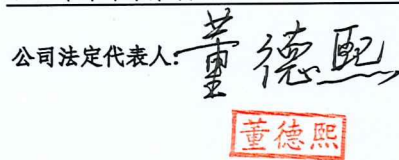 公司法定代表人:董德熙
董德熙